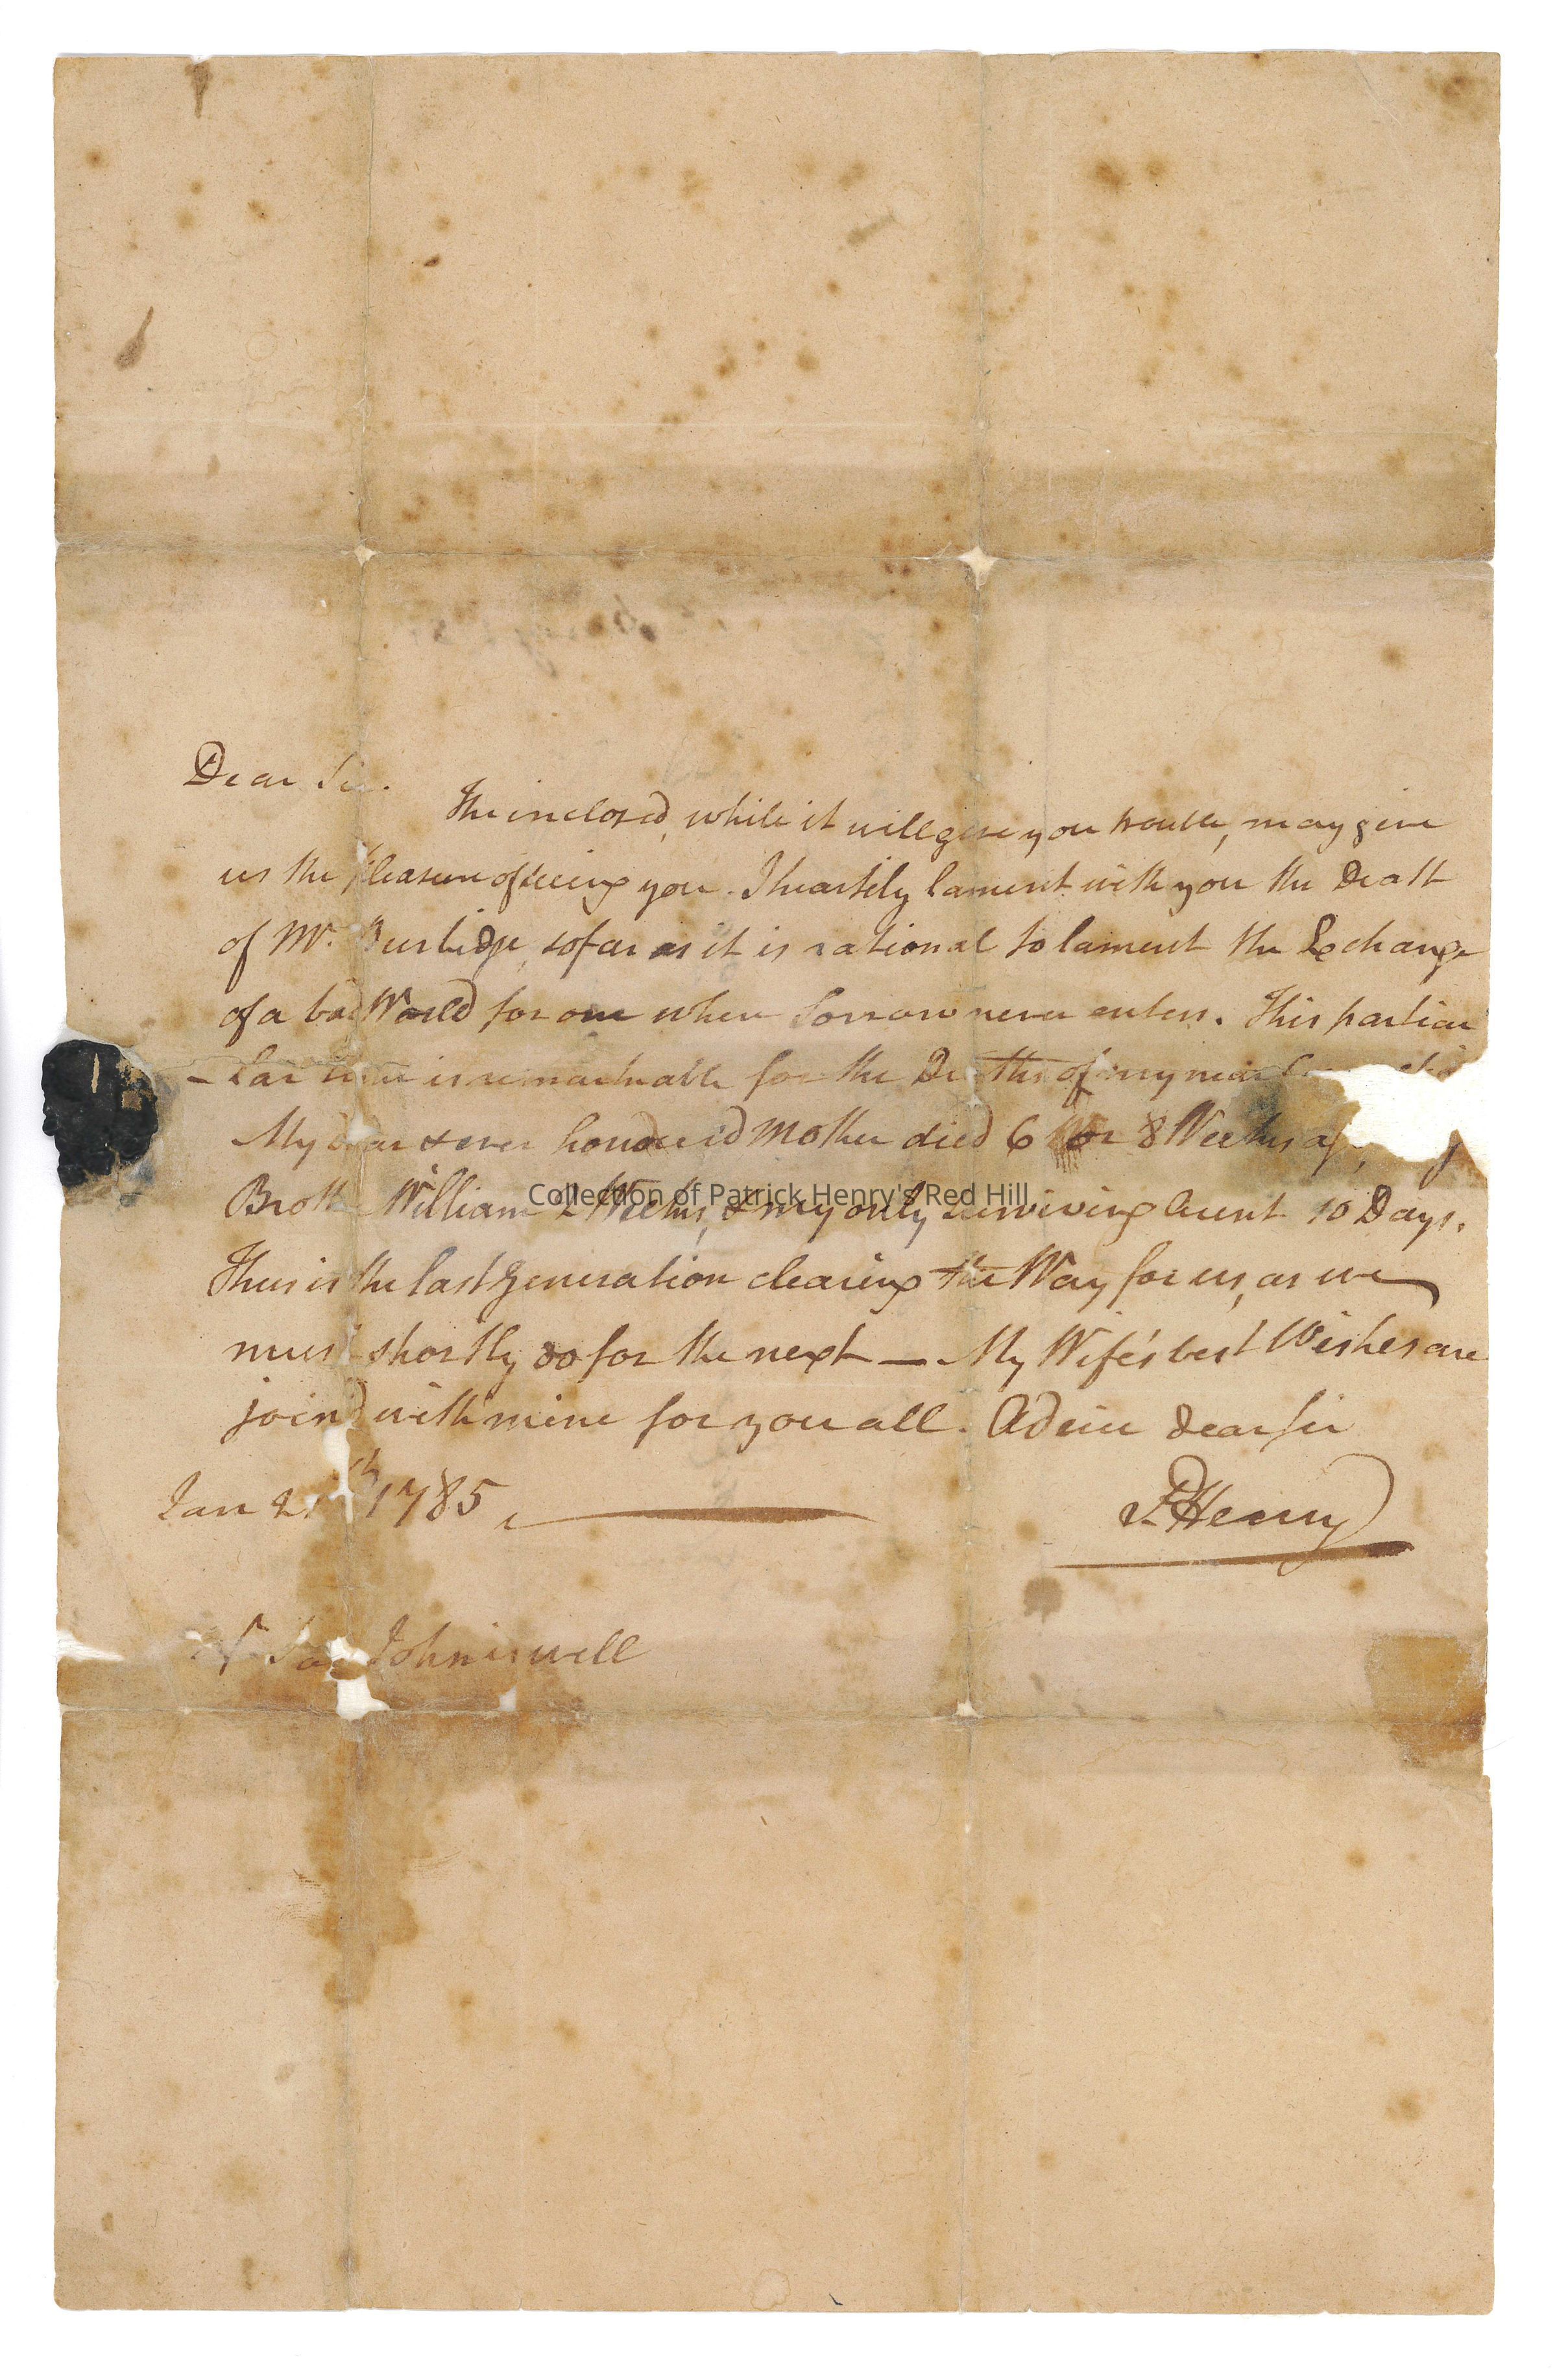 Dear Sir.
The inclosed, while it will give you trouble, may give
us the pleasure of seeing you. I heartily lament with you the Death
of Mr. Burbidge, so far as it is rational to lament the Exchange
of a bad World for one where Sorrow never enters. This particu
-lar time is remarkable for the Deaths of my near
My dear & ever honoured Mother died 6 or 8 Weeks ago,
Brothr William 2 Weeks, & my only surviving Aunt 10 Days.
Collection of Patrick Henry's Red Hill
Thus is the last Generation clearing the Way for us, as we
must shortly do for the next — My Wife's best Wishes are
joind with mine for you all. Adieu dear Sir
Jan 21th 1785
P. Henry
Johnis well